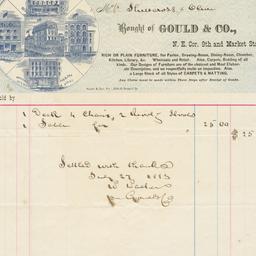 Mr
Bought of GOULD & CO.,
N. E. Cor. 9th and Market St
RICH OR PLAIN FURNITURE, for Parlor, Drawing-Room, Dining-Room, Chamber,
Kitchen, Library, &c. Wholesale and Retail. Also, Carpets, Bedding of all
kinds. Our Designs of Furniture are of the choicest and Most Elabor-
ate Description, and we respectfully invite an inspection. Also,
a Large Stock of all Styles of CARPETS & MATTING.
Any Claim must be made within Three Days after Receipt of Goods.
old by
1 Desk 4 Chairs, 2 Stools
1 Table for 25 00
$ 25
Settled with thanks
July 27 1883
Gould & Co